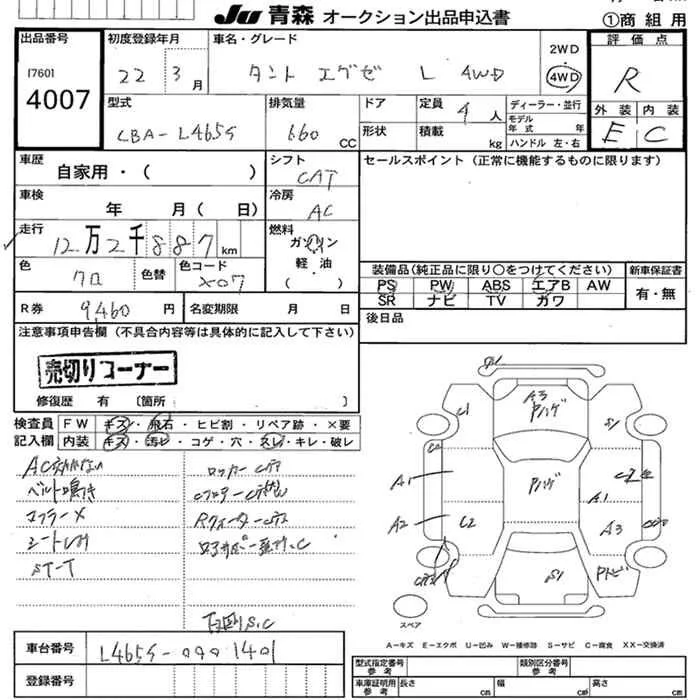 Ju 青森 オークション出品申込書
①商 組 用
出品番号 初度登録年月 車名・グレード 評価点
17601
4007
22 3月
タント エグゼ L 4WD
2WD
4WD
R
型式 排気量 ドア 定員 ディーラー・並行 外装 内装
4人
モデル
年式 年
660 CC
形状 積載 kg
ハンドル 左・右
E C
車歴 シフト セールスポイント（正常に機能するものに限ります）
自家用・（ ）
CAT
車検 冷房
年 月（ 日） AC
走行 燃料
12万2千887km ガソリン
軽・油
色 色替 色コード
クロ X07
装備品（純正品に限り○をつけてください） 新車保証書
PS PW ABS エアB AW 有・無
SR ナビ TV カワ
R券 9,460円 名変期限 月 日
後日品
注意事項申告欄（不具合内容等は具体的に記入して下さい）
売切りコーナー
修復歴 有 〔箇所 〕
検査員 FW キズ・飛石・ヒビ割・リペア跡・×要
記入欄 内装 キズ・汚レ・コゲ・穴・スレ・キレ・破レ
ベルト鳴き
マフラーメ
ST-T
下廻りS.C
A3
Pハゲ
C1
S1
Pハゲ
A1
A1
A2
C2
A3
S1
Pトビ
スペア
A－キズ E－エクボ U－凹み W－補修跡 S－サビ C－腐食 XX－交換済
車台番号
登録番号
型式指定番号
参考
類別区分番号
参考
車庫証明用
参考
長さ cm 幅 cm 高さ cm